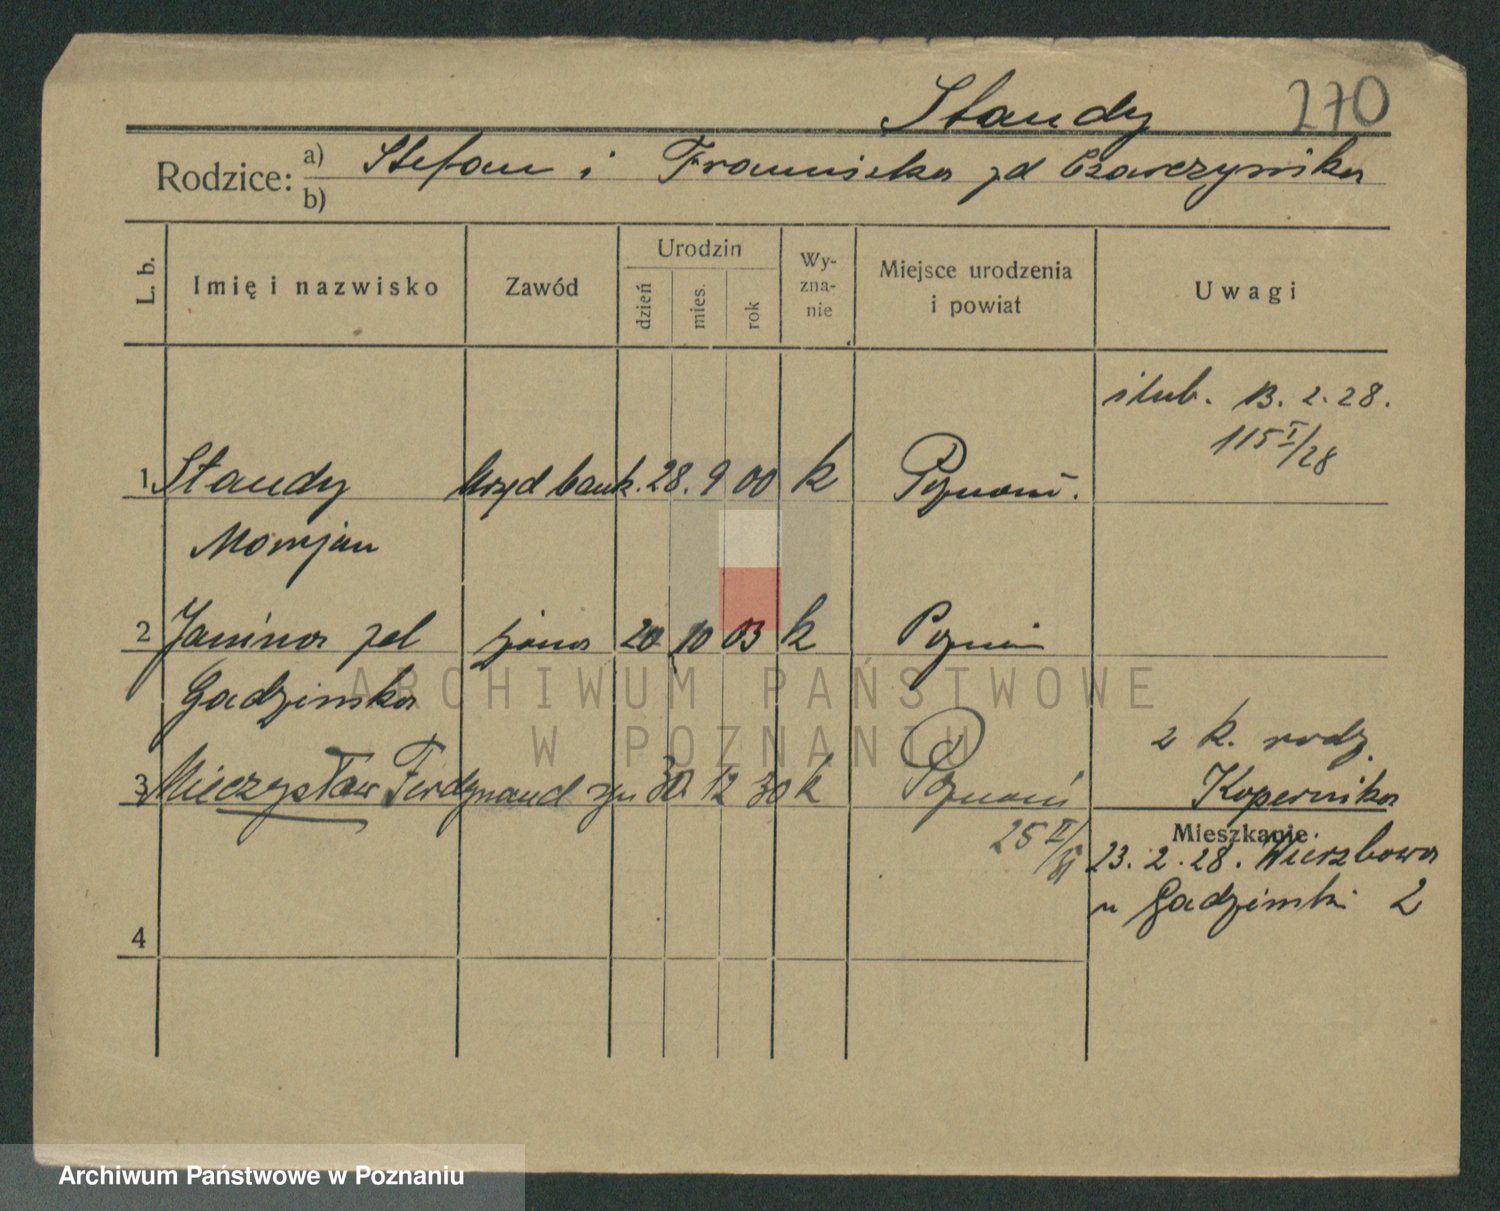 Standy
270
Rodzice: a) Stefan i Franciszka zd Czarczyńska
b)
L. b.
Imię i nazwisko
Zawód
Urodzin
dzień
mies.
rok
Wy-
zna-
nie
Miejsce urodzenia
i powiat
Uwagi
ślub. 13. 2. 28.
115 I/28
1 Standy urzęd bank. 28. 9 00 k Poznań.
Marjan
2 Janina zd żona 20 10 03 k Poznań
Gadzinska
2 k. rodz.
3 Mieczysław Ferdynand syn 30. 12 30 k Poznań
Kopernika
25 II/31
Mieszkanie.
23. 2. 28. Wierzbowa
u Gadzinski 2
4
ARCHIWUM PAŃSTWOWE
W POZNANIU
Archiwum Państwowe w Poznaniu